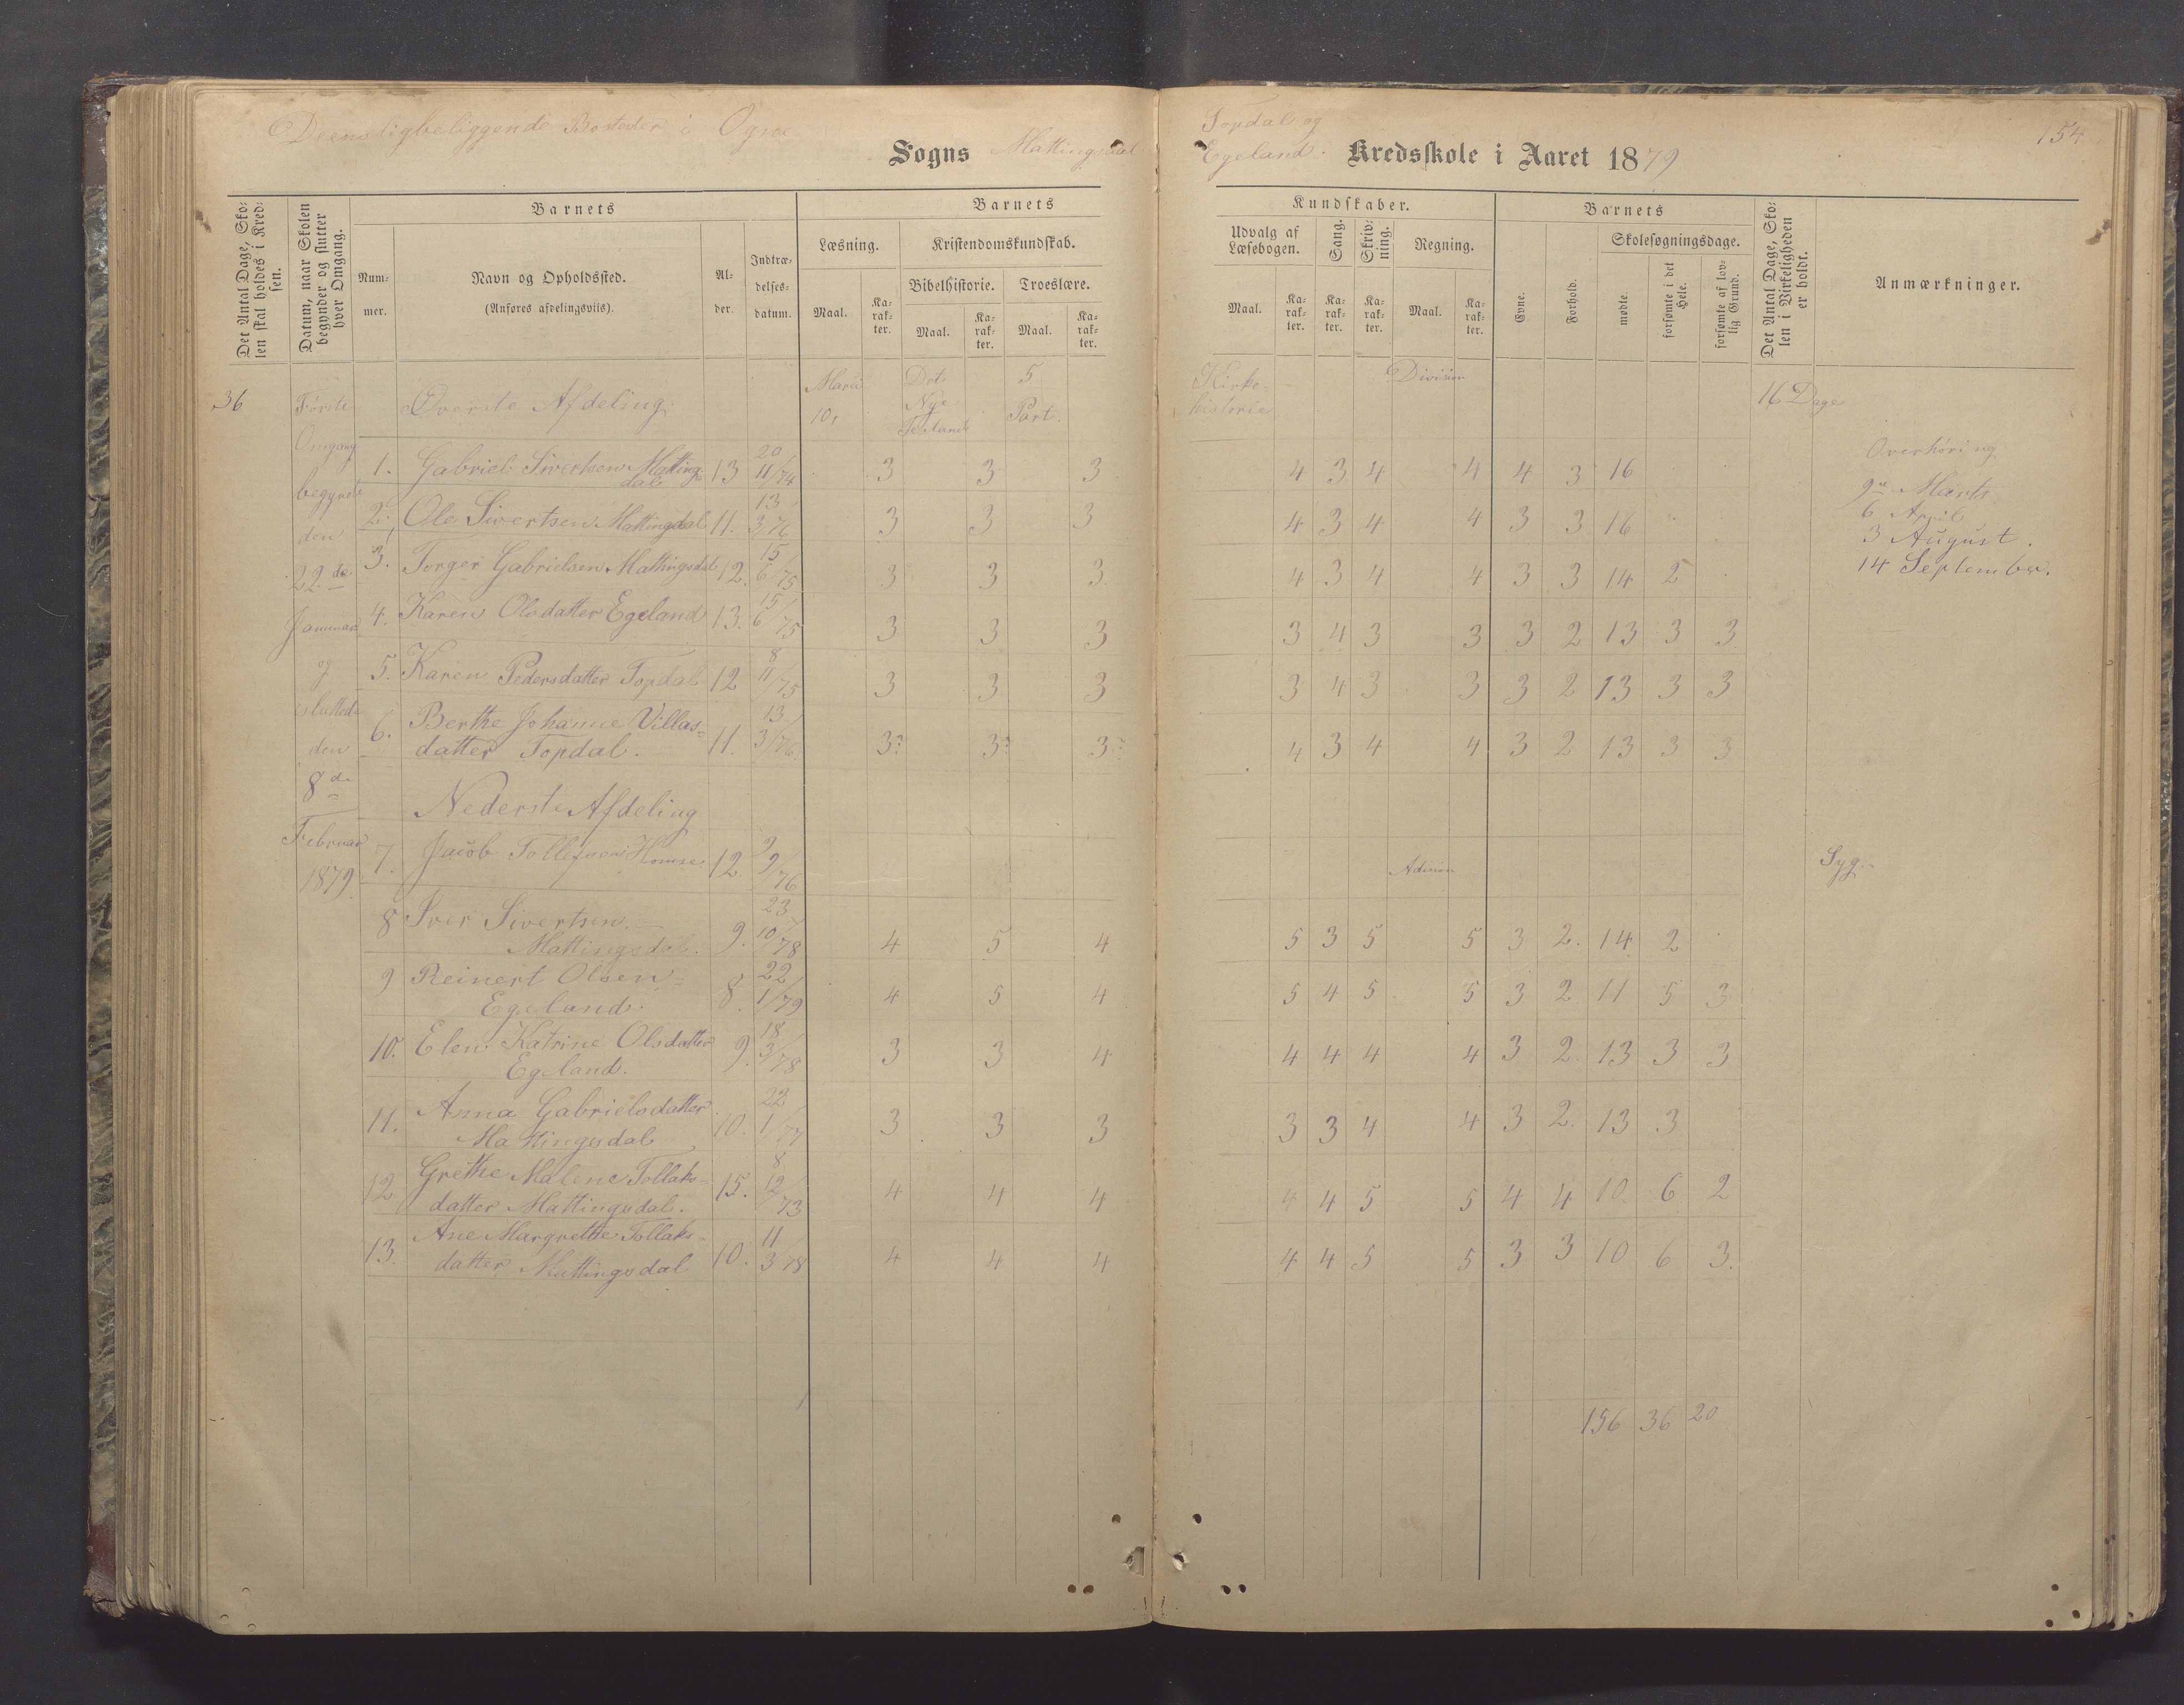 Beensligbeliggende Bosteder i Ogne
Sogns Mattingsdal
Topdal og
Egeland. Kredsskole i Aaret 1879
154
Det Antal Dage, Sko-
len skal holdes i Kred-
sen.
Datum, naar Skolen
begynder og slutter
hver Omgang.
Barnets
Num-
mer.
Navn og Opholdssted.
(Anføres afdelingsviis).
Al-
der.
Indtræ-
delses-
datum.
Barnets
Læsning.
Maal.
Ka-
rak-
ter.
Kristendomskundskab.
Bibelhistorie.
Maal.
Ka-
rak-
ter.
Troeslære.
Maal.
Ka-
rak-
ter.
Kundskaber.
Udvalg af
Læsebogen.
Maal.
Ka-
rak-
ter.
Sang.
Ka-
rak-
ter.
Skriv-
ning.
Ka-
rak-
ter.
Regning.
Maal.
Ka-
rak-
ter.
Barnets
Evne.
Forhold.
Skolesøgningsdage.
mødte.
forsømte i det
Hele.
forsømte af lov-
lig Grund.
Det Antal Dage, Sko-
len i Virkeligheden
er holdt.
Anmærkninger.
36
Første
Omgang
begyndte
den
22de
Januar
og
sluttede
den
8de
Februar
1879.
Øverste Afdeling
10,
Det
Nye
5
Part.
Kirke-
historie
Division
16 Dage
1. Gabriel Sivertsen Matting-
dal 13 20/11/74 3 3 3 4 3 4 4 4 3 16
2. Ole Sivertsen Mattingsdal 11. 13/3/76 3 3 3 4 3 4 4 3 3 16
3. Torger Gabrielsen Mattingsdal 12. 15/6/75 3 3 3 4 3 4 4 3 3 14 2
4. Karen Olsdatter Egeland 13. 15/6/75 3 3 3 3 4 3 3 3 2 13 3 3
5. Karen Pedersdatter Topdal 12 8/11/75 3 3 3 3 4 3 3 3 2 13 3 3
6. Berthe Johanne Villas-
datter Topdal. 11. 13/3/76 3? 3? 3? 4 3 4 4 3 2 13 3 3
Overhøring
9de Marts
6 April
3 August.
14 September.
Nederste Afdeling
7. Jacob Tollefsen 12. 9/9/76 Syg.
8 Iver Sivertsen
Mattingsdal. 9. 23/10/78 4 5 4 5 3 5 5 3 2. 14 2
9 Reinert Olsen
Egeland. 8. 22/1/79 4 5 4 5 4 5 5 3 2 11 5 3
10. Elen Katrine Olsdatter
Egeland. 9. 18/3/78 3 3 4 4 4 4 4 3 2. 13 3 3
11. Anna Gabrielsdatter
Mattingsdal 10. 22/1/77 3 3 3 3 3 4 4 3 2. 13 3
12 Grethe Malene Tollaks-
datter Mattingsdal. 15. 8/12/73 4 4 4 4 4 5 5 4 4 10 6 2
13. Ane Margrethe Tollaks-
datter Mattingsdal 10. 11/3 78 4 4 4 4 4 5 5 3 3 10 6 3.
156 36 20